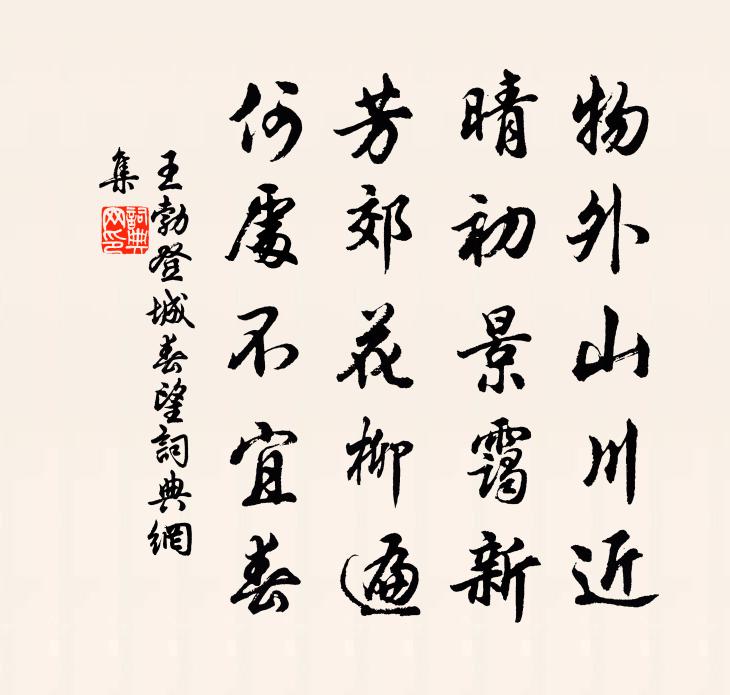 物外山川近
晴初景靄新
芳郊花柳遍
何處不宜春
王勃登城春望詞典網
集
詞典
网印